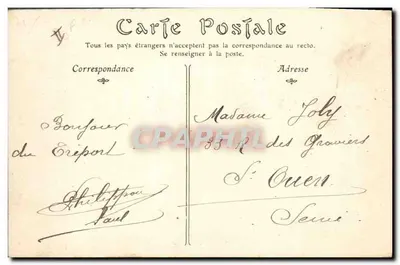 Carte Postale
Tous les pays étrangers n'acceptent pas la correspondance au recto.
Se renseigner à la poste.
Correspondance
Adresse
Bonjour
du Tréport
Philippon
Paul
Madame Joly
35 R. des Graviers
St Ouen
Seine
CPAPHIL